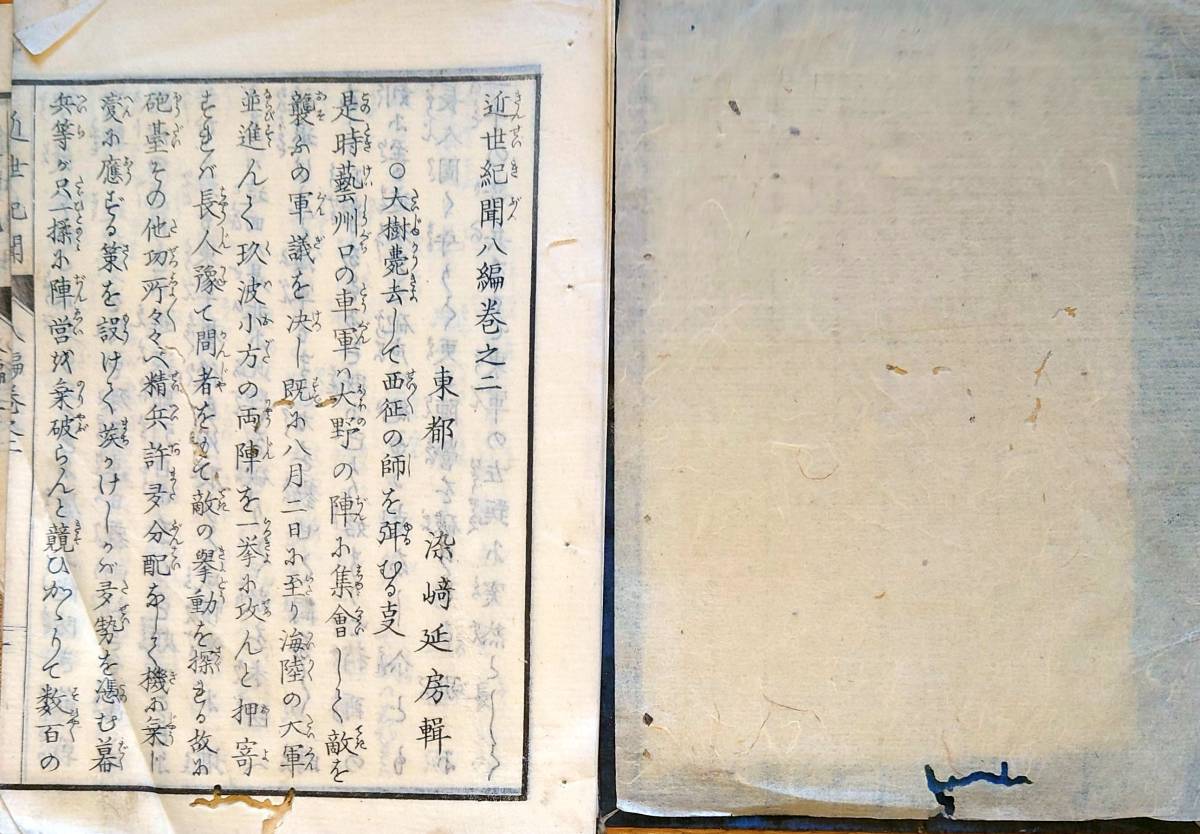 近世紀聞八編巻之二
東都 染﨑延房輯
〇大樹薨去して西征の師を弭むる支
是時藝州口の東軍ハ大野の陣に集會して敵を
襲ふの軍議を决し既に八月二日に至り海陸の大軍
並進んて玖波小方の両陣を一挙に攻んと押寄
すれバ長人豫て間者をもて敵の擧動を探れる故に
砲臺その他切所々々へ精兵許多分配なして機に乗じ
変に應ずる策を設けて俟かけしかバ多勢を憑む幕
兵等が只一揉に陣営を乗破らんと競ひかゝりて数百の
近世紀聞
八編巻之二